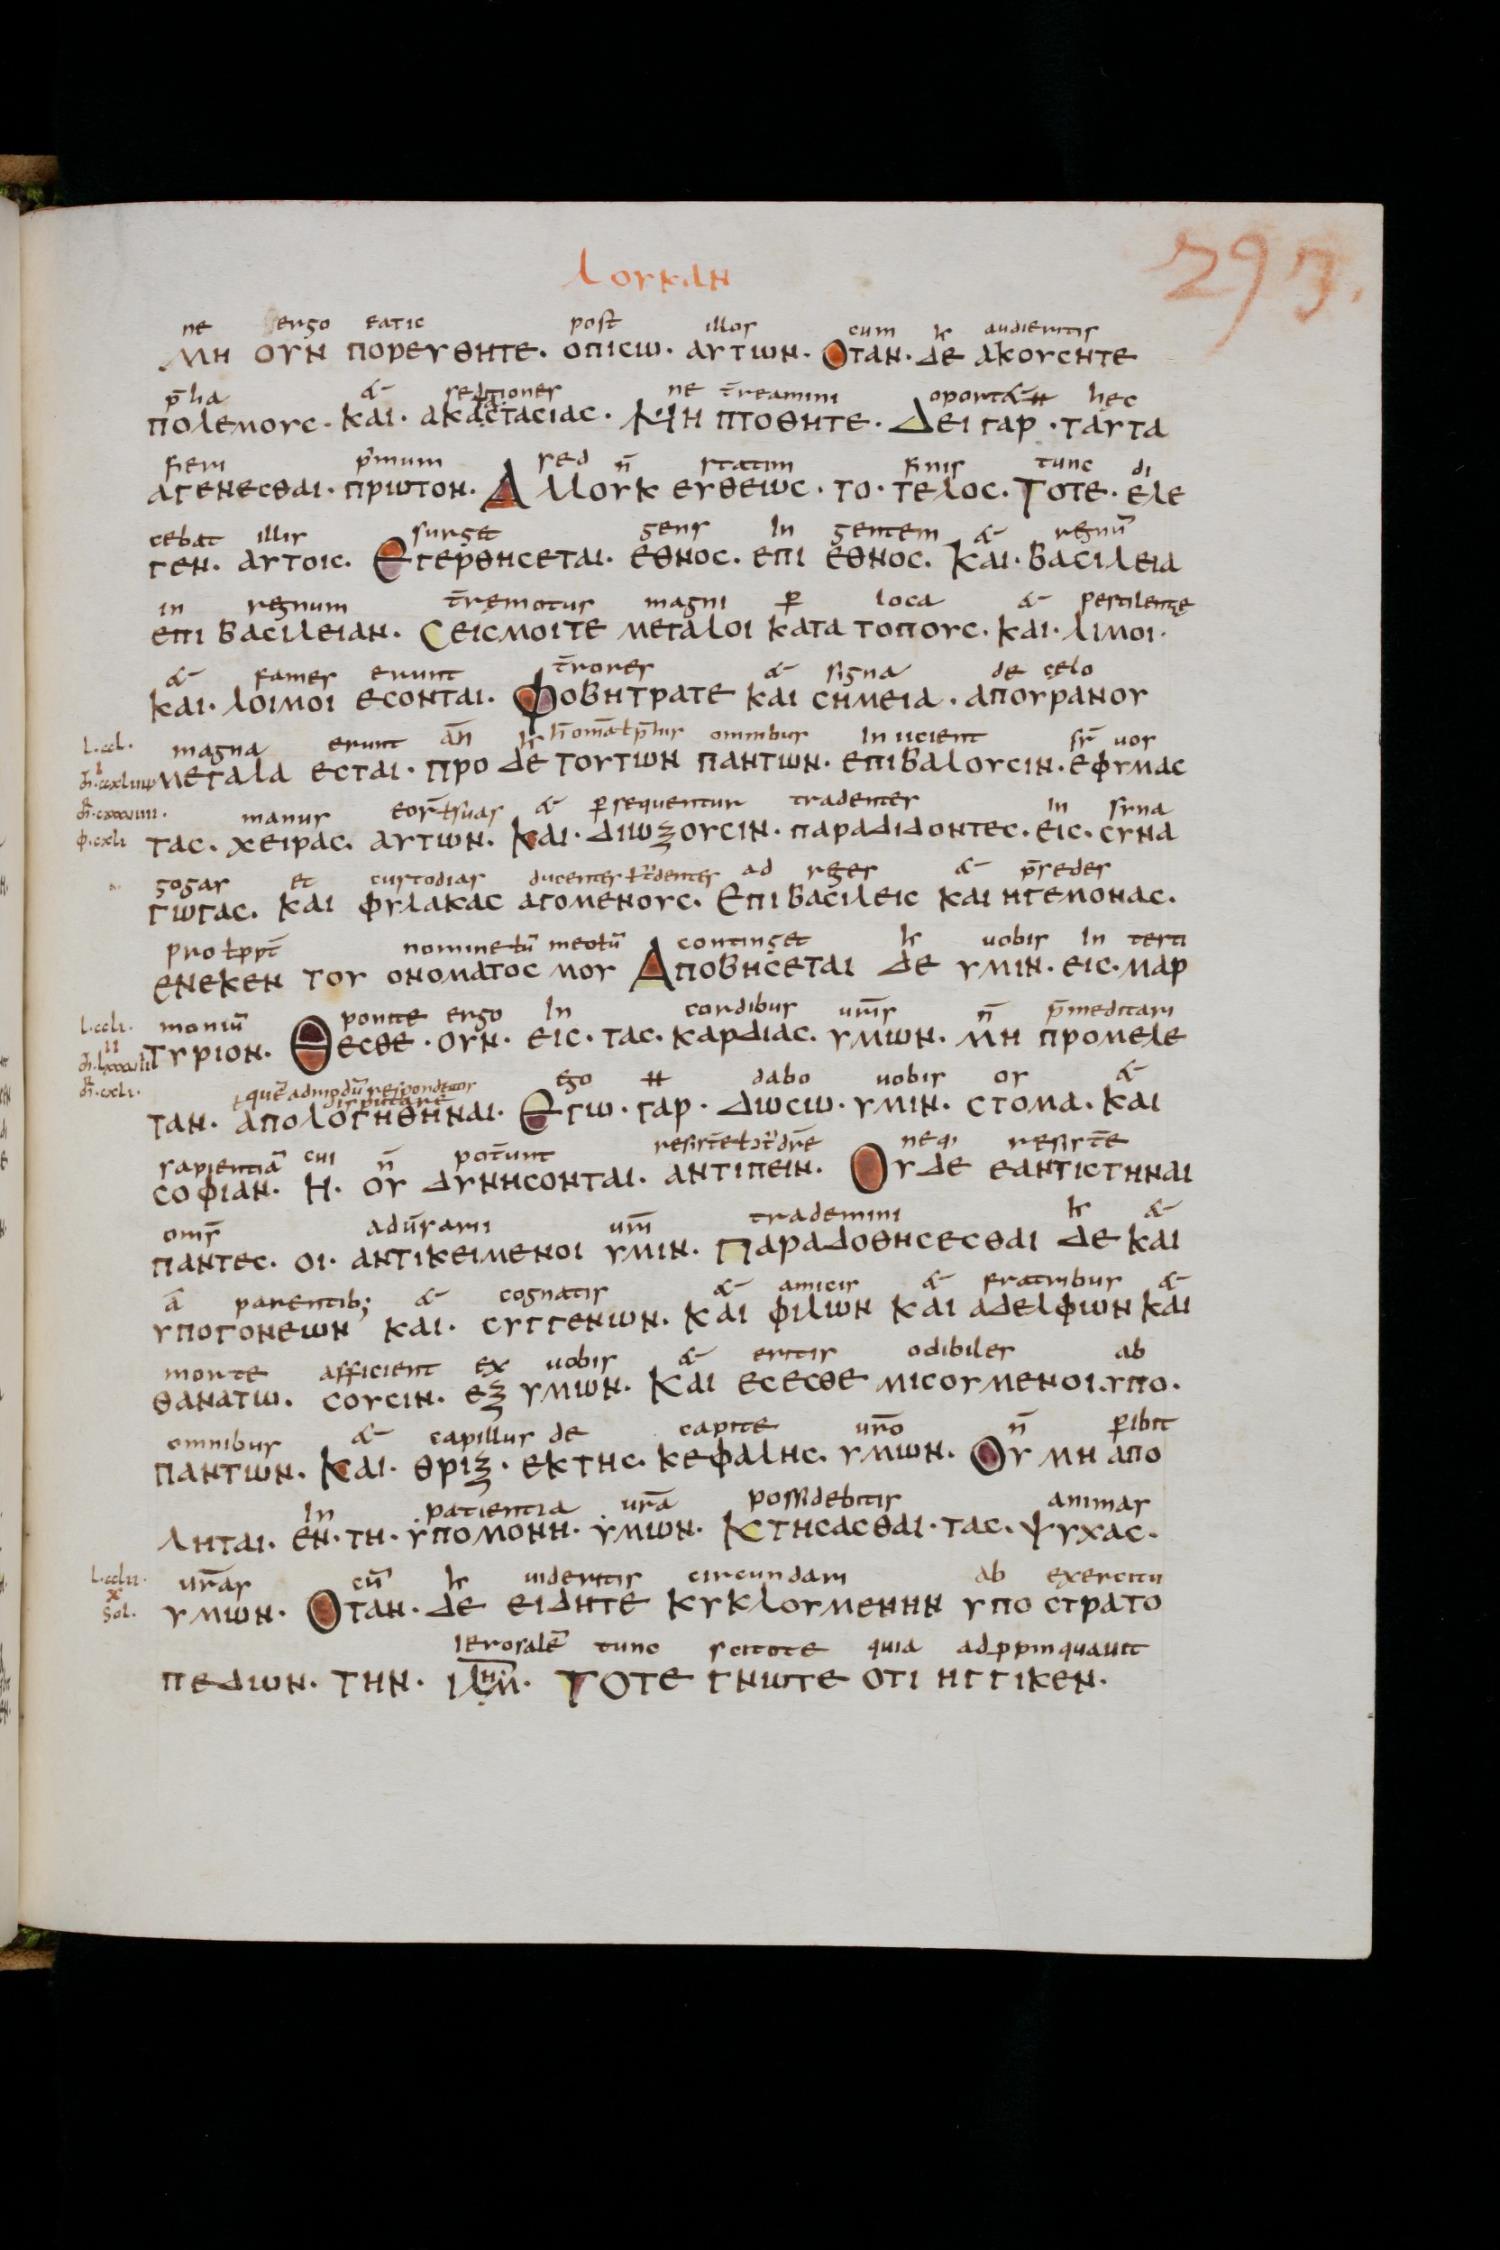 ΛΟΥΚΑΝ
293.
ne ergo eatis post illos cum ł audieritis
ΜΗ ΟΥΝ ΠΟΡΕΥΘΗΤΕ· ΟΠΙСѠ· ΑΥΤѠΝ· ΟΤΑΝ· ΔΕ ΑΚΟΥСΗΤΕ
p̄lia & seditiones ne t̄reamini oport& ++ hęc
ΠΟΛΕΜΟΥС· ΚΑΙ· ΑΚΑСΤΑСΙΑС· ΜΗ ΠΤΟΘΗΤΕ· ΔΕΙ ΓΑΡ· ΤΑΥΤΑ
fieri p̄mum sed n̄ statim finis tunc di
ΑΓΕΝΕСΘΑΙ· ΠΡѠΤΟΝ· ΑΛΛΟΥΚ ΕΥΘΕѠС· ΤΟ· ΤΕΛΟС· ΤΟΤΕ· ΕΛΕ
cebat illis surget gens In gentem & regnū
ΓΕΝ· ΑΥΤΟΙС· ΕΓΕΡΘΗСΕΤΑΙ· ΕΘΝΟС· ΕΠΙ ΕΘΝΟС· ΚΑΙ· ΒΑСΙΛΕΙΑ
in regnum t̄remotus magni p̄ loca & pestilentię
ΕΠΙ ΒΑСΙΛΕΙΑΝ· СΕΙСΜΟΙΤΕ ΜΕΓΑΛΟΙ ΚΑΤΑ ΤΟΠΟΥС· ΚΑΙ· ΛΙΜΟΙ·
& fames erunt t̄rores & signa de celo
ΚΑΙ· ΛΟΙΜΟΙ ΕСΟΝΤΑΙ· ΦΟΒΗΤΡΑΤΕ ΚΑΙ СΗΜΕΙΑ· ΑΠΟΥΡΑΝΟΥ
magna erunt an̄ omnibus Inicient sr̄ uos
ΜΕΓΑΛΑ ΕСΤΑΙ· ΠΡΟ ΔΕ ΤΟΥΤѠΝ ΠΑΝΤѠΝ· ΕΠΙΒΑΛΟΥСΙΝ· ΕΦΥΜΑС
manus eor̄ ł suas & p̄sequentur tradentes In syna
ΤΑС· ΧΕΙΡΑС· ΑΥΤѠΝ· ΚΑΙ· ΔΙѠΞΟΥСΙΝ· ΠΑΡΑΔΙΔΟΝΤΕС· ΕΙС· СΥΝΑ
gogas et custodias ducentes ł t̄dentes ad reges & p̄sedes
ΓѠΓΑС· ΚΑΙ ΦΥΛΑΚΑС ΑΓΟΜΕΝΟΥС· ΕΠΙ ΒΑСΙΛΕΙС ΚΑΙ ΗΓΕΜΟΝΑС·
pro ł ppt̄ nomine ł ū meo ł ū continget ł uobis In testi
ΕΝΕΚΕΝ ΤΟΥ ΟΝΟΜΑΤΟС ΜΟΥ ΑΠΟΒΗСΕΤΑΙ ΔΕ ΥΜΙΝ· ΕΙС· ΜΑΡ
moniū ponite ergo In cordibus urīs n̄ p̄meditari
ΤΥΡΙΟΝ· ΘΕСΘΕ· ΟΥΝ· ΕΙС· ΤΑС· ΚΑΡΔΙΑС· ΥΜѠΝ· ΜΗ ΠΡΟΜΕΛΕ
ego ++ dabo uobis os &
ΤΑΝ· ΑΠΟΛΟΓΗΘΗΝΑΙ· ΕΓѠ· ΓΑΡ· ΔѠСѠ· ΥΜΙΝ· СΤΟΜΑ· ΚΑΙ
sapientiā cui n̄ pot̄unt neq; resist̄e
СΟΦΙΑΝ· Η· ΟΥ ΔΥΝΗСΟΝΤΑΙ· ΑΝΤΙΠΕΙΝ· ΟΥΔΕ ΕΑΝΤΙСΤΗΝΑΙ
oms̄ adūsarii urīn trademini ł &
ΠΑΝΤΕС· ΟΙ· ΑΝΤΙΚΕΙΜΕΝΟΙ ΥΜΙΝ· ΠΑΡΑΔΟΘΗСΕСΘΑΙ ΔΕ ΚΑΙ
ā parentib; & cognatis & amicis & fratribus &
ΥΠΟΓΟΝΕѠΝ ΚΑΙ· СΥΓΓΕΝѠΝ· ΚΑΙ ΦΙΛѠΝ ΚΑΙ ΑΔΕΛΦѠΝ ΚΑΙ
morte afficient ex uobis & eritis odibiles ab
ΘΑΝΑΤѠ· СΟΥСΙΝ· ΕΞ ΥΜѠΝ· ΚΑΙ ΕСΕСΘΕ ΜΙСΟΥΜΕΝΟΙ· ΥΠΟ·
omnibus & capillus de capite urō n̄ p̄ibit
ΠΑΝΤѠΝ· ΚΑΙ· ΘΡΙΞ· ΕΚΤΗС· ΚΕΦΑΛΗС· ΥΜѠΝ· ΟΥ ΜΗ ΑΠΟ
In patientia urā possidebitis animas
ΛΗΤΑΙ· ΕΝ· ΤΗ· ΥΠΟΜΟΝΗ· ΥΜѠΝ· ΚΤΗСΑСΘΑΙ· ΤΑС· ΨΥΧΑС·
urās cū ł uideritis circundari ab exercitu
ΥΜѠΝ· ΟΤΑΝ· ΔΕ ΕΙΔΗΤΕ ΚΥΚΛΟΥΜΕΝΗΝ ΥΠΟ СΤΡΑΤΟ
Ierosalē tunc scitote quia adppinquauit
ΠΕΔѠΝ· ΤΗΝ· ΙΛΗΜ· ΤΟΤΕ ΓΝѠΤΕ ΟΤΙ ΗΓΓΙΚΕΝ·